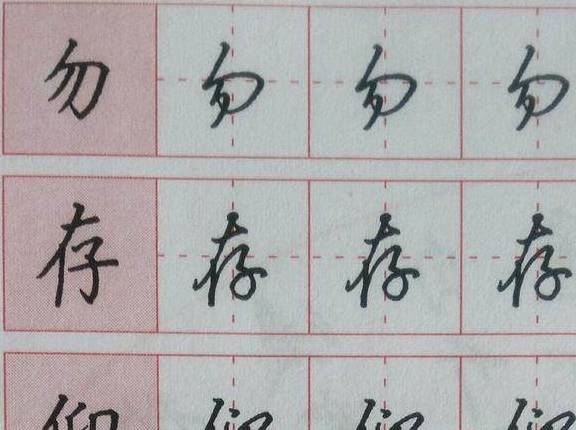 勿 勿 勿 勿
存 存 存 存